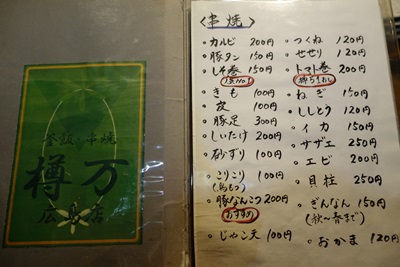 釜飯・串焼
樽万
広島店
〈串焼〉
・カルビ 200円
・豚タン 150円
・しそ巻 150円
人気No.1
・きも 100円
・皮 100円
・豚足 300円
・しいたけ 200円
・砂ずり 100円
・こりこり 100円
(鳥もつ)
・豚なんこつ 200円
おすすめ
・じゃこ天 100円
・つくね 120円
・せせり 120円
・トマト巻 200円
・ねぎ 150円
・ししとう 150円
・イカ 150円
・サザエ 250円
・エビ 200円
・貝柱 250円
・ぎんなん 150円
(秋〜春まで)
・おかま 120円